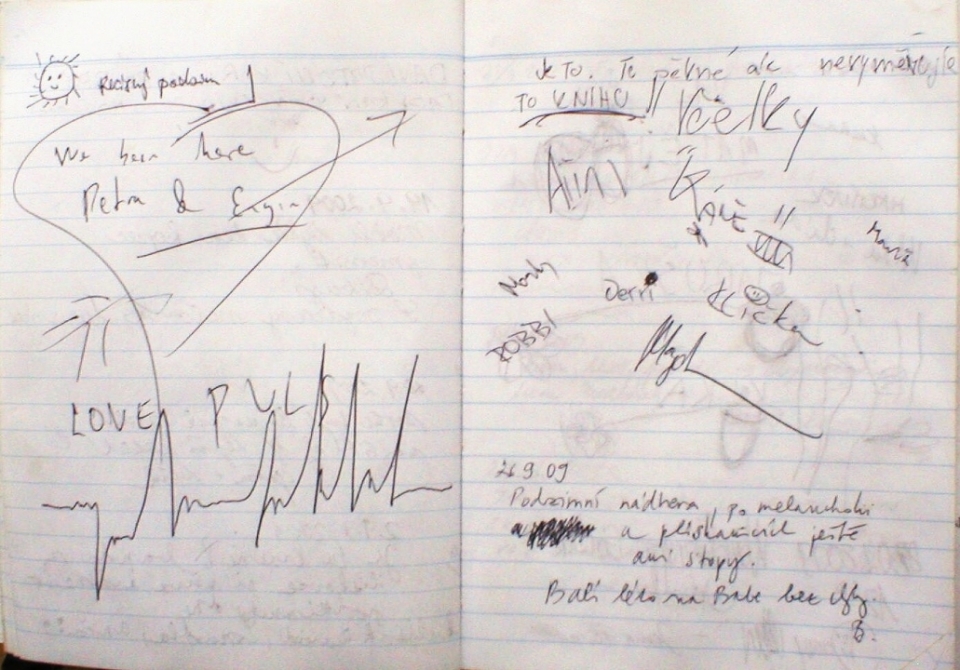 We been here
Petra &
LOVE PULS
Je To. To pěkné ale nevyměňujte
TO KNIHU !!
Včelky
Áji
Káče
Marťa
Nordy
Derri
Klička
ROBBI
Magd
26.9.09
Podzimní nádhera, po melancholii
a plískanicích ještě
ani stopy.
Babí léto na Babě bez chyby.
B.